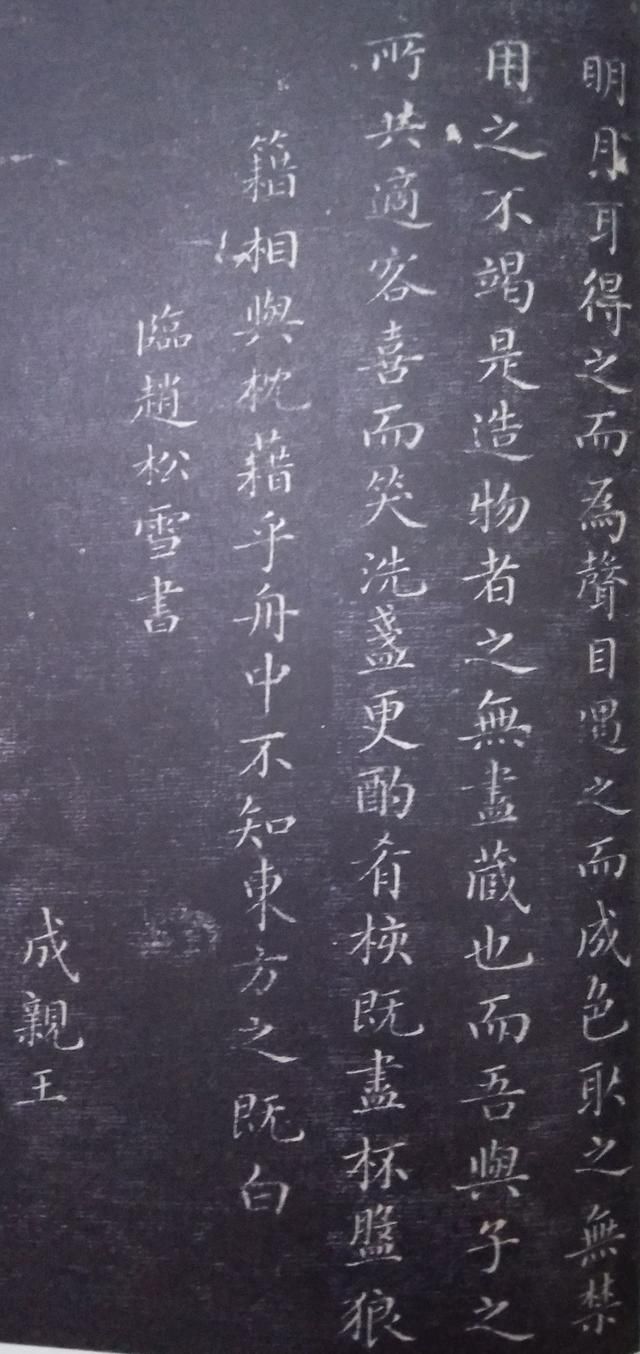 明月耳得之而為聲目遇之而成色取之無禁
用之不竭是造物者之無盡蔵也而吾與子之
所共適客喜而笑洗盞更酌肴核既盡杯盤狼
籍相與枕藉乎舟中不知東方之既白
臨趙松雪書
成親王